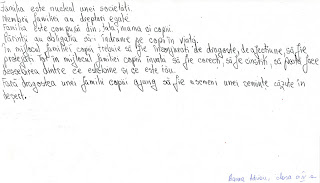 Familia este nucleul unei societăti.
Membrii familiei au drepturi egale.
Familia este compusă din, tată, mama si copii.
Părintii au obligatia să-i îndrume pe copii în viată.
În mijlocul familiei copii trebuie să fie înconjurati de dragoste, de afectiune, să fie
protejati tot în mijlocul familiei copii învată să fie corecti, să fie cinstiti, să poată face
deosebirea dintre ce este bine si ce este rău.
Fără dragostea unei familii copiii ajung să fie asemeni unei seminte căzute în
desert.
clasa a